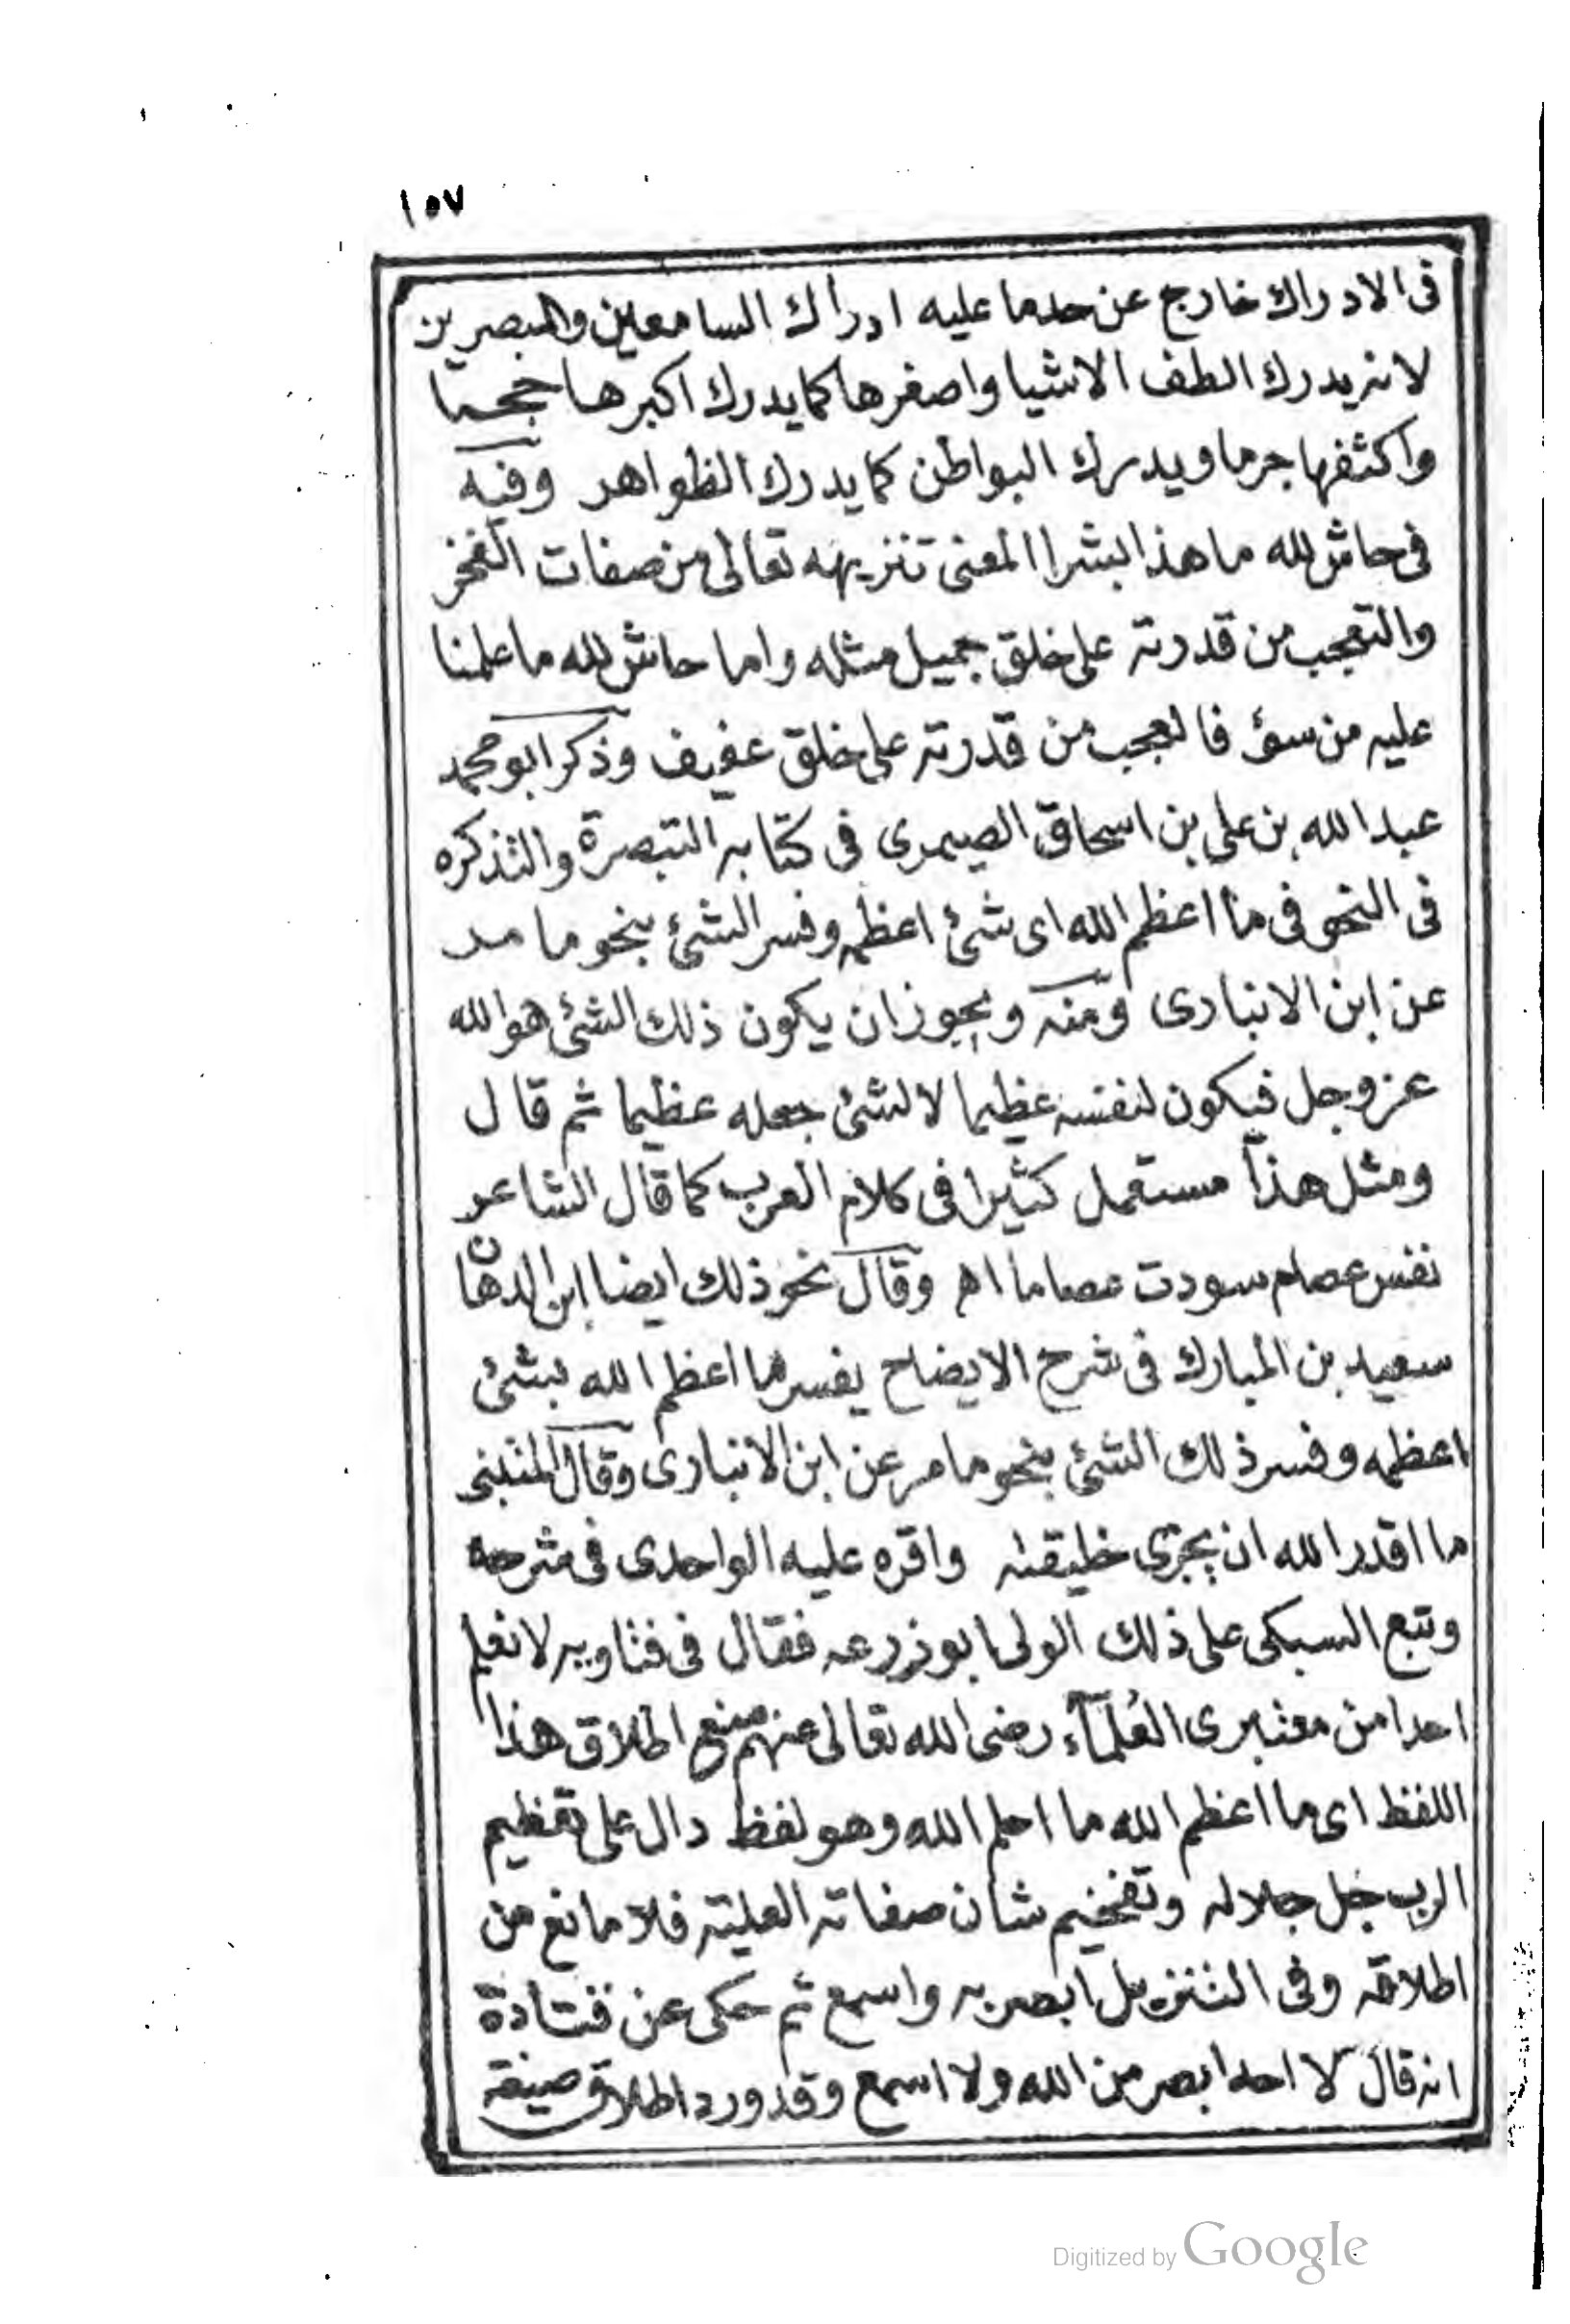 ١٥٧
فى الادراك خارج عن حد ما عليه ادراك السامعين والمبصرين
لانه يدرك الطف الاشيا واصغرها كما يدرك اكبرها حجما
واكثفها جرما ويدرك البواطن كما يدرك الظواهر وفيه
فى حاش لله ما هذا بشرا المعنى تنزيهه تعالى من صفات العجز
والتعجب من قدرته على خلق جميل مثله واما حاش لله ما علمنا
عليه من سوء فالتعجب من قدرته على خلق عفيف وذكر ابو محمد
عبد الله بن على بن اسحاق الصيمرى فى كتابه التبصرة والتذكره
فى النحو فى ما اعظم الله اى شئ اعظمه وفسر الشئ بنحو ما مر
عن ابن الانبارى ومنه ويجوز ان يكون ذلك الشئ هو الله
عز وجل فيكون لنفسه عظيما لا لشئ جعله عظيما ثم قال
ومثل هذا مستعمل كثيرا فى كلام العرب كما قال الشاعر
نفس عصام سودت عصاما اه وقال نحو ذلك ايضا ابن الدهان
سعيد بن المبارك فى شرح الايضاح يفسر ما اعظم الله بشئ
اعظمه وفسر ذلك الشئ بنحو ما مر عن ابن الانبارى وقال المتنبى
ما اقدر الله ان يجزى خليقته واقره عليه الواحدى فى شرحه
وتبع السبكى على ذلك الولى ابو زرعه فقال فى فتاويه لا نعلم
احدا من معتبرى العُلمآء رضى الله تعالى عنهم منع اطلاق هذا
اللفظ اى ما اعظم الله ما احلم الله وهو لفظ دال على تعظيم
الرب جل جلاله وتفخيم شان صفاته العلية فلا مانع من
اطلاقه وفى التنزيل ابصر به واسمع ثم حكى عن قتادة
انه قال لا احد ابصر من الله ولا اسمع وقد ورد اطلاق صيغة
Digitized by Google